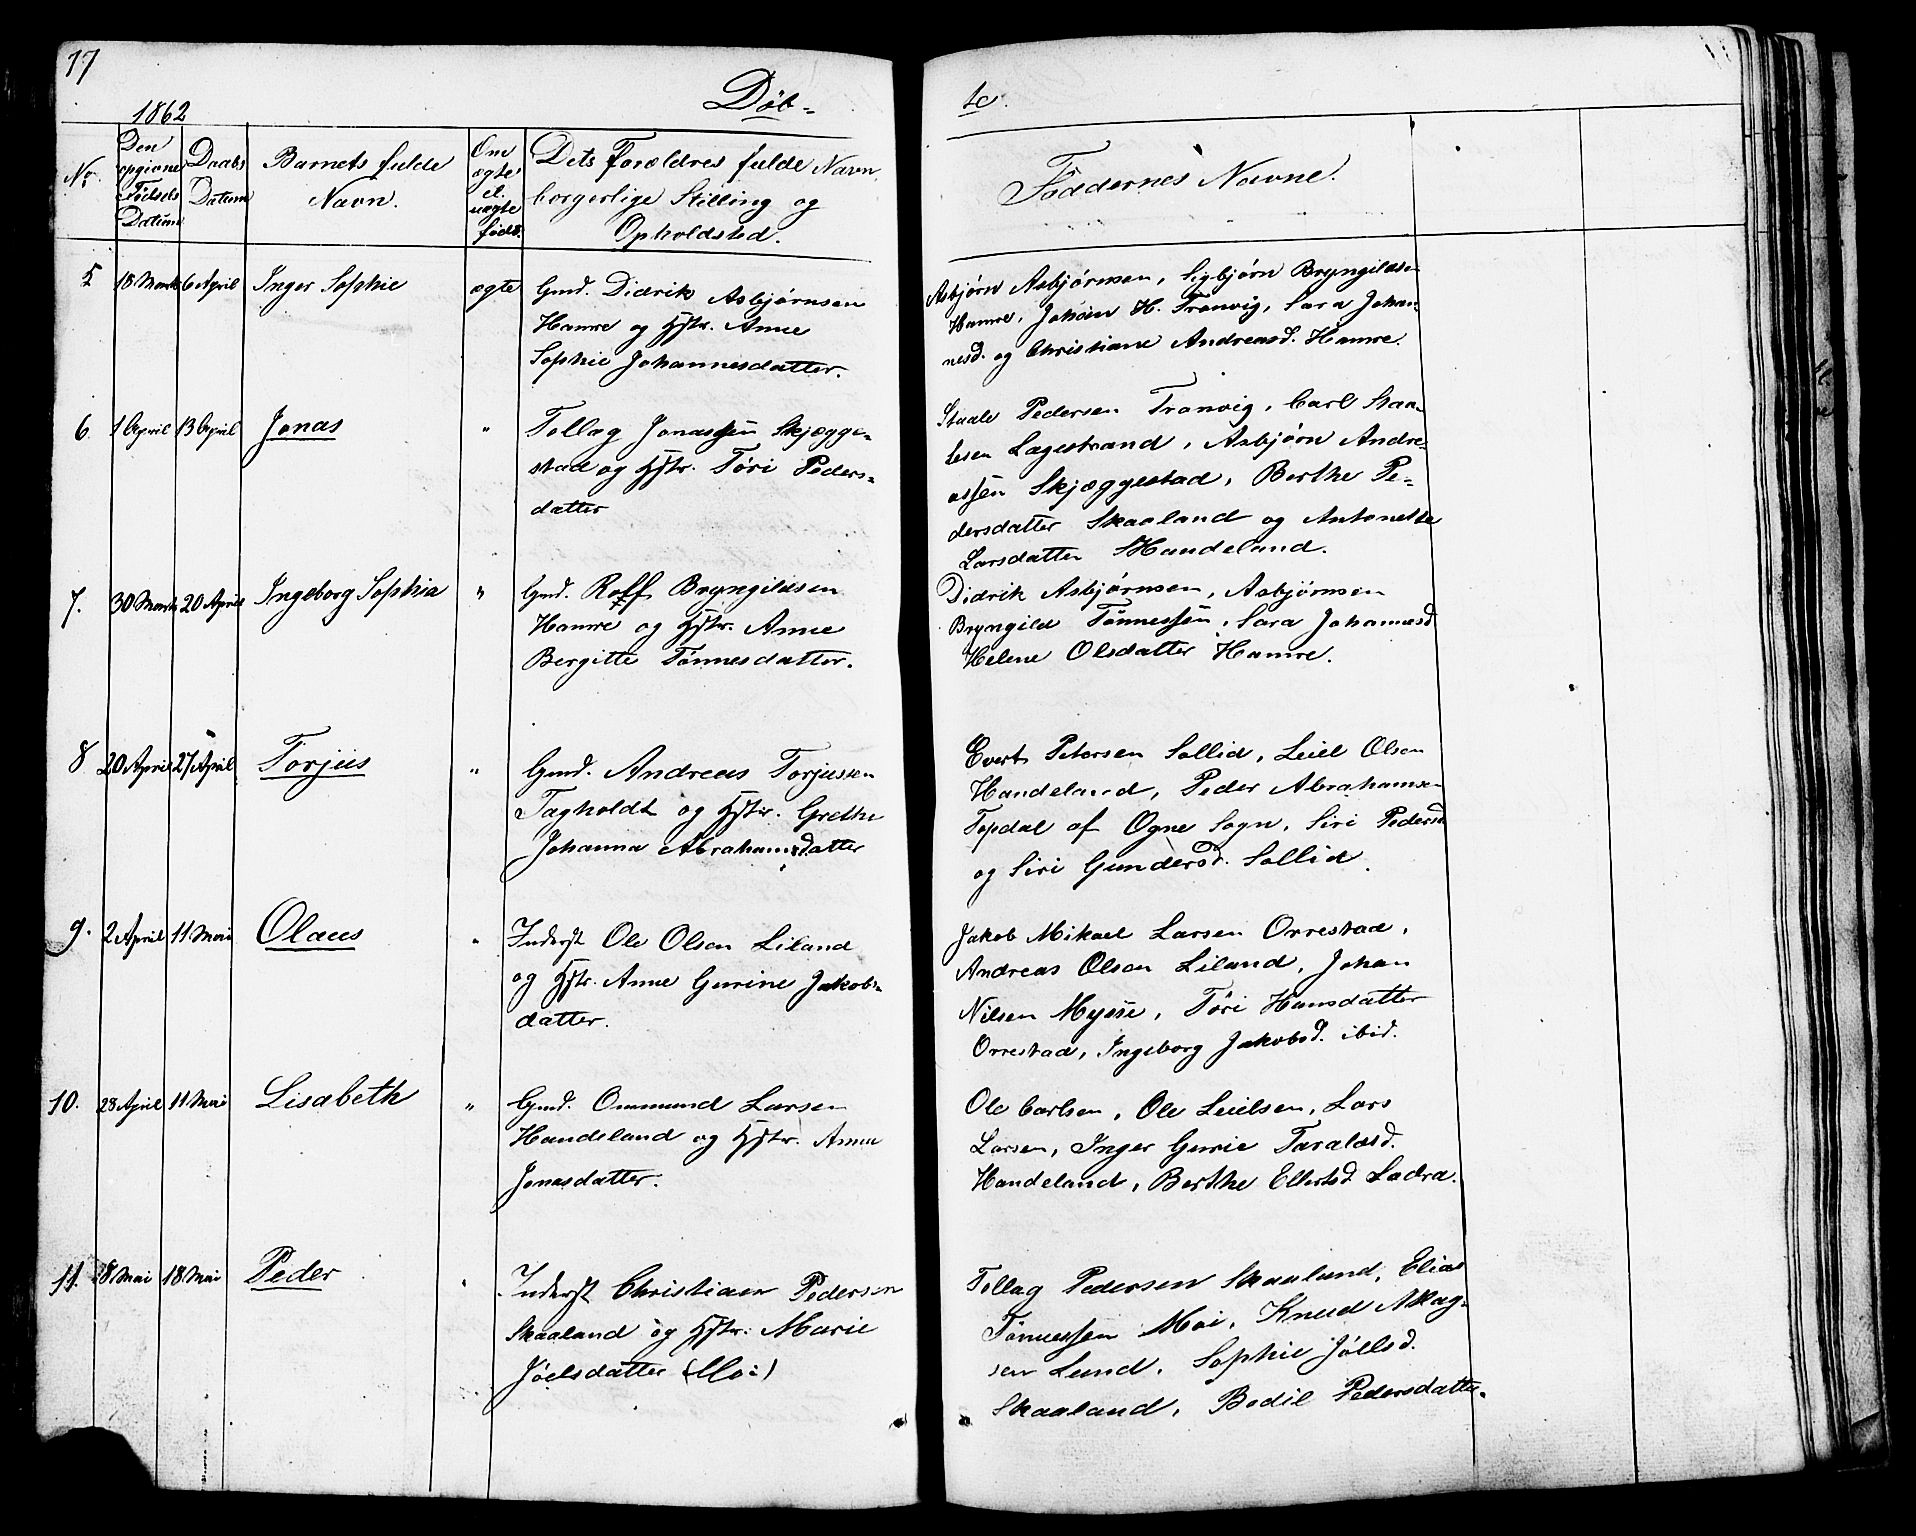 17
1862
Døb-
te.
No.
Den opgivne Fødsels Datum
Daabs Datum
Barnets fulde Navn.
Om ægte el. uægte født.
Dets Forældres fulde Navn, borgerlige Stilling og Opholdsted.
Faddernes Navne.
5 18 Marts 6 April Inger Sophie ægte Gmd. Didrik Asbjørnsen
Hamre og Hstr. Anne
Sophie Johannesdatter.
Asbjørn Asbjørnsen, Sigbjørn Bryngilsen
Hamre, Johan H. Tronvig, Sara Johan-
nesd. og Christiane Andreasd. Hamre.
6 1 April 13 April Jonas " Tollag Jonassen Skjægge-
stad og Hstr. Tøri Peders-
datter
Staale Pedersen Tronvig, Carl Staa-
lesen Lagestrand, Asbjørn Andre-
assen Skjæggestad, Berthe Pe-
dersdatter Skaaland og Antonette
Larsdatter Handeland.
7. 30 Marts 20 April Ingeborg Sophia " Gmd. Roff Bryngilsen
Hamre og Hstr. Anne
Bergitte Tønnesdatter.
Didrik Asbjørnsen, Asbjørnsen
Bryngild Tønnessen, Sara Johannesd
Helene Olsdatter Hamre.
8 20 April 27 April Torjus " Gmd. Andreas Torjussen
Tagholdt og Hstr. Grethe
Johanna Abrahamsdatter
Evert Petersen Sollid, Leiel Olsen
Handeland, Peder Abrahamsen
Topdal af Ogne Sogn, Siri Pedersd
og Siri Gundersd. Sollid.
9. 2 April 11. Mai Olaus " Inderst Ole Olsen Liland
og Hstr. Anne Gurine Jakobs-
datter.
Jakob Mikael Larsen Orrestad,
Andreas Olsen Liland, Johan
Nilsen Mysse, Tøri Hansdatter
Orrestad, Ingeborg Jakobsd. ibid.
10. 28 April 11. Mai Lisabeth " Gmd. Ommund Larsen
Handeland og Hstr. Anne
Jonasdatter.
Ole Carlsen, Ole Leielsen, Lars
Larsen, Inger Gurie Taralsd.
Handeland, Berthe Ellertsd. Ladra.
11. 8 Mai 18. Mai Peder " Inderst Christian Pedersen
Skaaland og Hstr. Marie
Jöelsdatter (Moi)
Tollag Pedersen Skaaland, Elias
Tønnessen Moi, Knud Akag-
sen Lund, Sophie Jöelsd.
Skaaland, Bodil Pedersdatter.